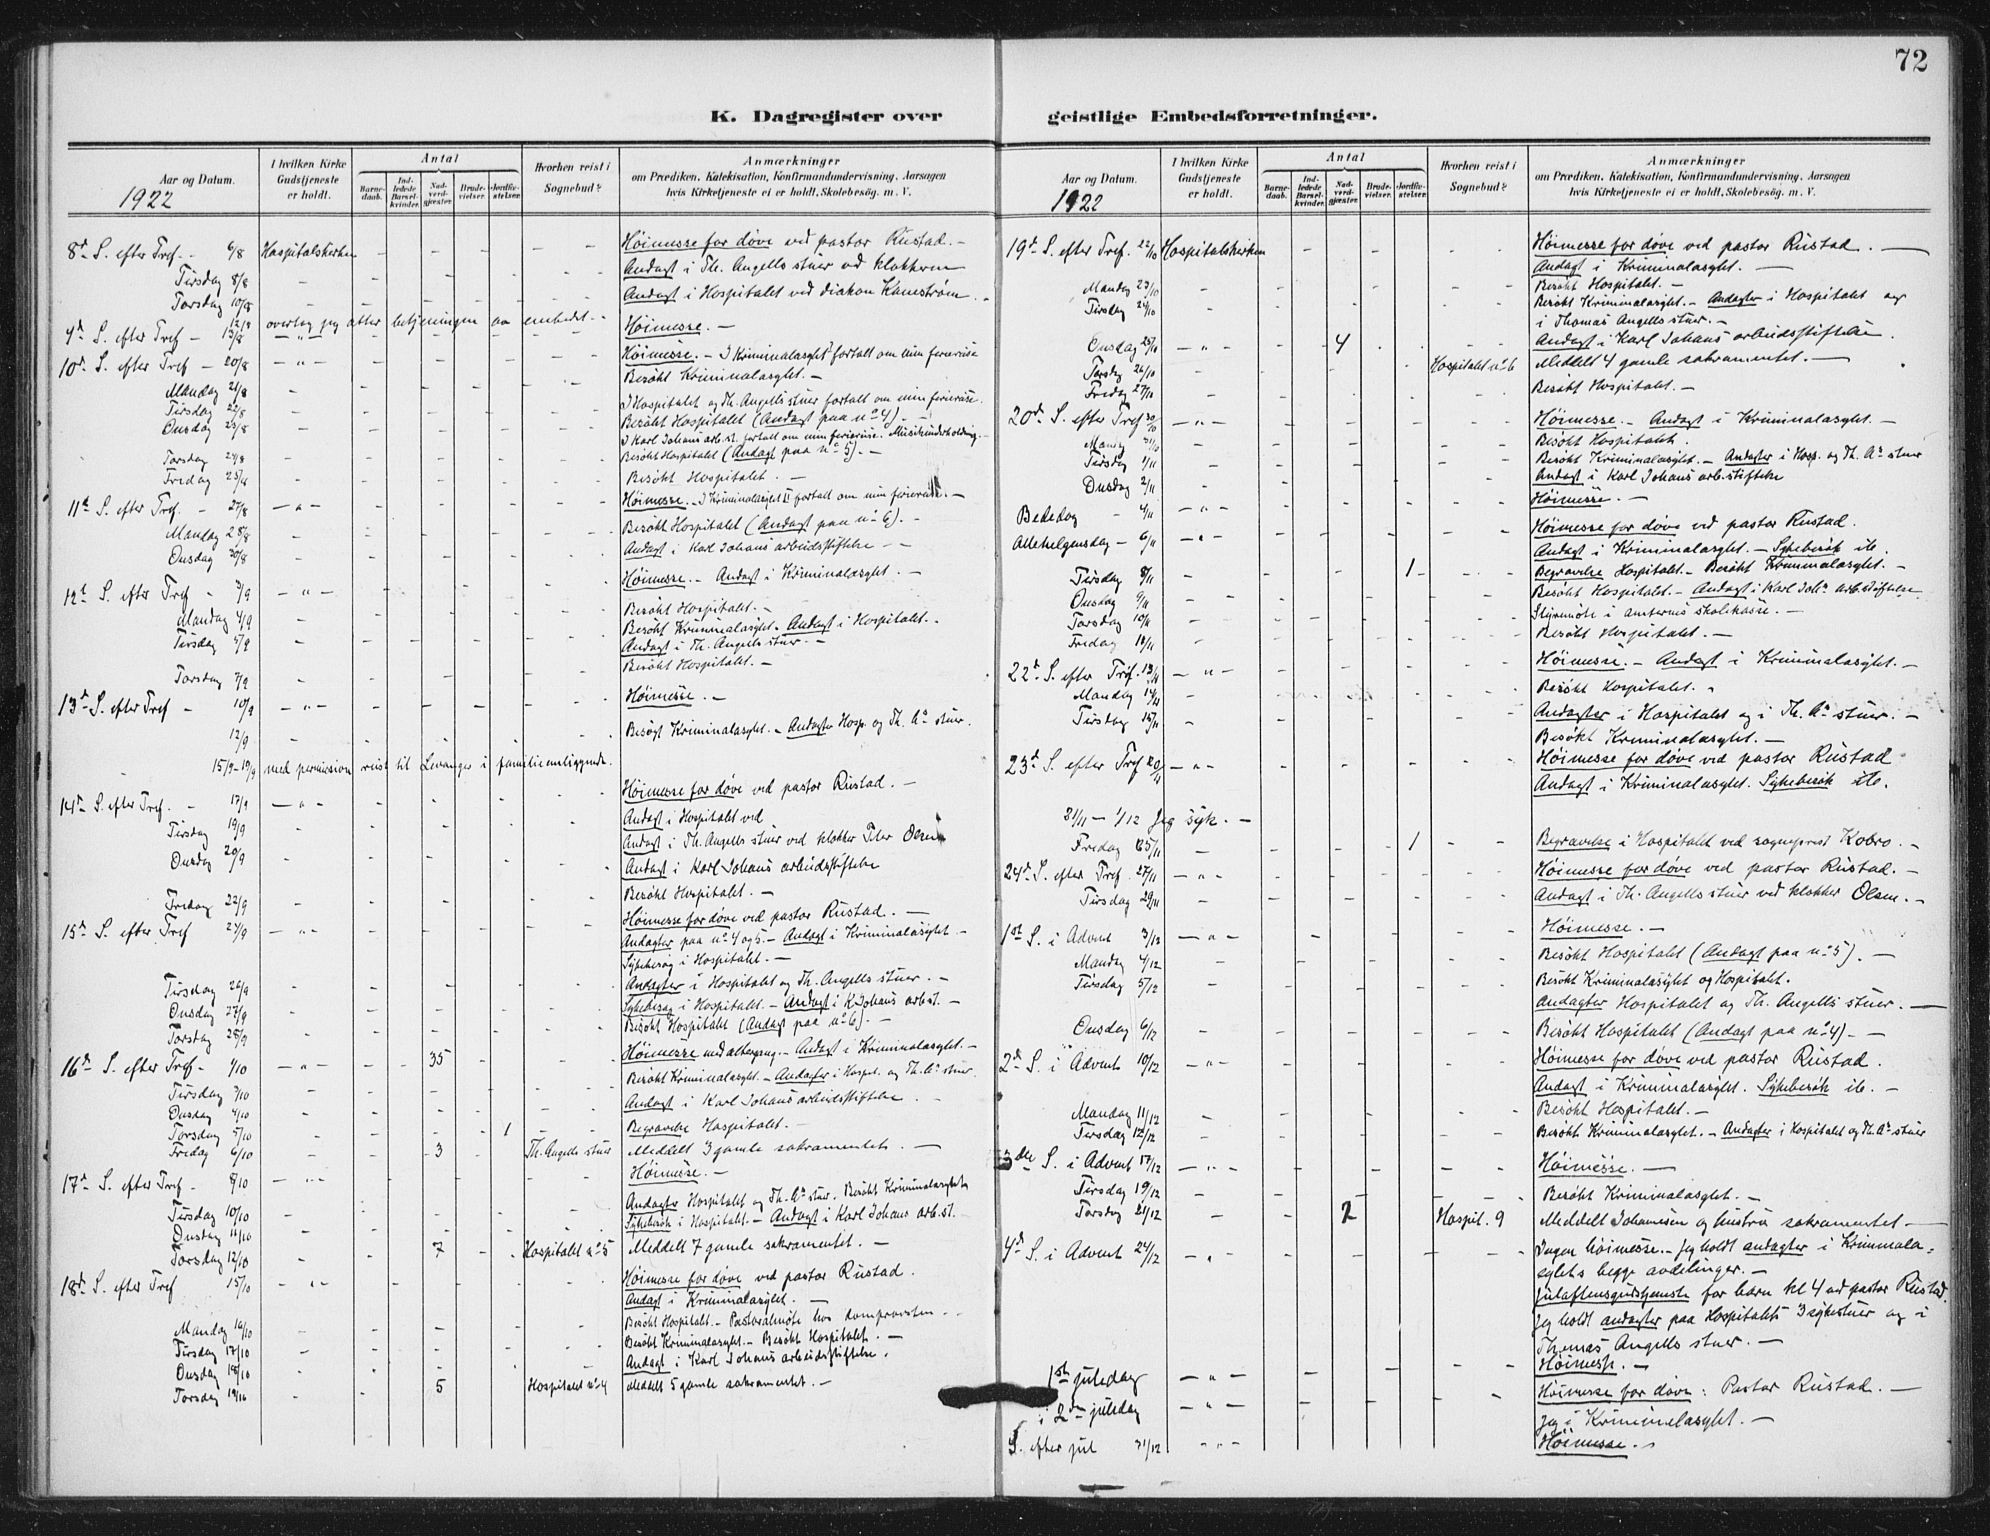 72
K. Dagregister over geistlige Embedsforretninger.
Aar og Datum.
1922
I hvilken Kirke Gudstjeneste er holdt.
Antal
Barnedaab.
Indledede Barselkvinder.
Nadverdgjæster.
Brudevielser.
Jordfæstelser.
Hvorhen reist i Sognebud?
Anmærkninger
om Prædiken, Katekisation, Konfirmandundervisning, Aarsagen
hvis Kirketjeneste ei er holdt, Skolebesøg, m. V.
8d S. efter Tref. - 6/8 Hospitalskirken - - - - - - Höimesse for döve ved pastor Rustad. -
Tirsdag 8/8 - Andagt i Th. Angells stuer ved klokkeren
Torsdag 10/8 - Andagt i Hospitalet ved diakon Kanestrøm.
12/8 overtog jeg atter betjeningen av embedet. -
S. efter Tref - 13/8 - " - Höimesse. -
10d S. efter Tref - 20/8 - " - Höimesse. - I Kriminalasylet fortalt om min feriereise
Mandag 21/8 - Besökt Kriminalasylet. -
Tirsdag 22/8 - I Hospitalet og Th. Angells stuer fortalt om min feriereise.
Onsdag 23/8 - Besökt Hospitalet (Andagt paa no 4) -
I Karl Johans arb.st. fortalt om min feriereise. Musikunderholdning. -
Torsdag 24/8 - Besökt Hospitalet (Andagt paa no 5). -
Fredag 25/8 - Besökt Hospitalet. -
11te S. efter Tref. - 27/8 - " - Höimesse. - I Kriminalasylet II fortalt om min feriereise. -
Mandag 28/8 - Besökt Hospitalet (Andagt paa no 6). -
Onsdag 30/8 - Andagt i Karl Johans arbeidsstiftelse - -
12te S. efter Tref - 3/9 - " - Höimesse. - Andagt i Kriminalasylet. -
Mandag 4/9 - Besökt Hospitalet. -
Tirsdag 5/9 - Besökt Kriminalasylet. Andagt i Hospitalet. -
Andagt i Th. Angells stuer. -
Torsdag 7/9 - Besökt Hospitalet. -
13d S. efter Tref - 10/9 - " - Höimesse. -
12/9 - Besögt Kriminalasylet. - Andagter Hosp. og Th. As stuer.
15/9 - 19/9 med permission reist til Levanger i familieanliggende.
14d S. efter Tref. - 17/9 - " - Höimesse for döve ved pastor Rustad. -
Tirsdag 19/9 - Andagt i Hospitalet ved
Andagt i Th. Angells stuer ved klokker Peter Olsen
Onsdag 20/9 - Andagt i Karl Johans arbeidsstiftelse
Fredag 22/9 - Besökt Hospitalet. -
15d S. efter Tref 24/9 - " - Höimesse for döve ved pastor Rustad. -
Andagter paa no 4 og 5. - Andagt i Kriminalasylet -
Sykebesög i Hospitalet. -
Tirsdag 26/9 - Andagter i Hospitalet og Th. Angells stuer. -
Onsdag 27/9 - Sykebesög i Hospitalet. - Andagt i K. Johans arb.st. -
Torsdag 28/9 - Besökt Hospitalet (Andagt paa no 6). -
16d S. efter Tref. - 1/10 - " - - - 35 - - Höimesse med altergang. - Andagt i Kriminalasylet. -
Tirsdag 3/10 - Besökt Kriminalasylet. - Andagter i Hospit. og Th. As stuer.
Onsdag 4/10 - Andagt i Karl Johans arbeidsstiftelse. -
Torsdag 5/10 - - - - - 1 - Begravelse Hospitalet. -
Fredag 6/10 - - - 3 - - Th. Angells stuer Meddelt 3 gamle sakramentet -
17d S. efter Tref. - 8/10 - " - Höimesse. -
Tirsdag 10/10 - Andagter Hospitalet og Th. As stuer. Besökt Kriminalasylet
Onsdag 11/10 - Sykebesök i Hospitalet. - Andagt i Karl Johans arb.st.
Torsdag 12/10 - - - 7 - - Hospitalet no 5 Meddelt 7 gamle sakramentet. -
18d S. efter Tref 15/10 - " - Höimesse for döve ved pastor Rustad.
Andagt i Kriminalasylet. -
Mandag 16/10 - Besökt Hospitalet. - Pastoralmöte hos domprovsten -
Tirsdag 17/10 - Besökt Kriminalasylet. - Besökt Hospitalet. -
Onsdag 18/10 - Andagt i Karl Johans arbeidsstiftelse.
Torsdag 19/10 - - - 5 - - Hospitalet no 4 Meddelt 5 gamle sakramentet. -
Aar og Datum.
1922
I hvilken Kirke Gudstjeneste er holdt.
Antal
Barnedaab.
Indledede Barselkvinder.
Nadverdgjæster.
Brudevielser.
Jordfæstelser.
Hvorhen reist i Sognebud?
Anmærkninger
om Prædiken, Katekisation, Konfirmandundervisning, Aarsagen
hvis Kirketjeneste ei er holdt, Skolebesøg, m. V.
19d S. efter Tref. 22/10 Hospitalskirken - Höimesse for döve ved pastor Rustad. -
Andagt i Kriminalasylet. -
Mandag 23/10 - Besökt Hospitalet. -
Tirsdag 24/10 - Besökt Kriminalasylet. - Andagter i Hospitalet og
i Thomas Angells stuer. -
Onsdag 25/10 - " - - - 4 Andagt i Karl Johans arbeidsstiftelse.
Torsdag 26/10 - Hospitalet no 6 Meddelt 4 gamle sakramentet. -
Fredag 27/10 - Besökt Hospitalet. -
20d S. efter Tref 29/10 - " - Höimesse. - Andagt i Kriminalasylet. -
Mandag - Besökt Hospitalet.
Tirsdag - Besökt Kriminalasylet. - Andagter i Hosp. og Th. As stuer
Onsdag - Andagt i Karl Johans arb.stiftelse
Bededag - " - Höimesse. -
Allehelgensdag - " - Höimesse for döve ved pastor Rustad.
Andagt i Kriminalasylet. - Sykebesök ib.
Tirsdag - - - - - 1 - Begravelse Hospitalet. - Besökt Kriminalasylet. -
Onsdag - Besökt Hospitalet. - Andagt i Karl Joh's arb.stiftelse
Torsdag - Styremöte i anternes skolekasse. -
Fredag - Besökt Hospitalet. -
22d S. efter Tref. - " - Höimesse. - Andagt i Kriminalasylet. -
Mandag 14/11 - Besökt Hospitalet. -
Tirsdag 15/11 - Andagter i Hospitalet og i Th. As stuer. -
Besökt Kriminalasylet. -
23d S. efter Tref 20/11 - " - Höimesse for döve ved pastor Rustad
Andagt i Kriminalasylet. Sykebesök ib.
21/11 - 1/12 Jeg syk. -
Fredag 25/11 - - - - - 1 - Begravelse i Hospitalet ved sogneprest Kobro. -
24d S. efter Tref. 27/11 - " - Höimesse for döve ved pastor Rustad. -
Tirsdag 29/11 - Andagt i Th. Angells stuer ved klokker Olsen. -
1st S. i Advent 3/12 - " - Höimesse. -
Mandag 4/12 - Besökt Hospitalet (Andagt paa no 5). -
Tirsdag 5/12 - Besökt Kriminalasylet og Hospitalet.
Andagter Hospitalet og Th. Angells stuer. -
Onsdag 6/12 - Besökt Hospitalet (Andagt paa no 4) -
2d S. i Advent 10/12 - " - Höimesse for döve ved pastor Rustad.
Andagt i Kriminalasylet. Sykebesök ib. -
Mandag 11/12 - Besökt Hospitalet. -
Tirsdag 12/12 - Besökt Kriminalasylet. - Andagter i Hospitalet og Th. As stuer
3die S. i Advent 17/12 - " - Höimesse. -
Tirsdag 19/12 - Besökt Kriminalasylet. -
Torsdag 21/12 - - - 2 - - Hospit. 9 Meddelt Johannesen og hustru sakramentet -
4d S. i Advent 24/12 - " - Ingen höimesse. - Jeg holdt andagter i Kriminala=
sylets begge avdelinger. -
Julaftensgudstjeneste for barn kl 4 ved pastor Rustad.
Jeg holdt andagter paa Hospitalets 3 sykestuer og i
Thomas Angells stuer. -
1st juledag - " - Höimesse. -
2den juledag - " - Höimesse for döve: Pastor Rustad. -
Jeg i Kriminalasylet. -
S. efter jul 31/12 - " - Höimesse. -